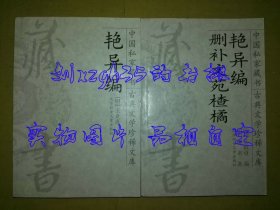 中国私家藏书古典文学珍稀文库
艳异编
藏书
中国私家藏书古典文学珍稀文库
艳异编
删补文苑楂橘
藏书
实物图片 品相自定